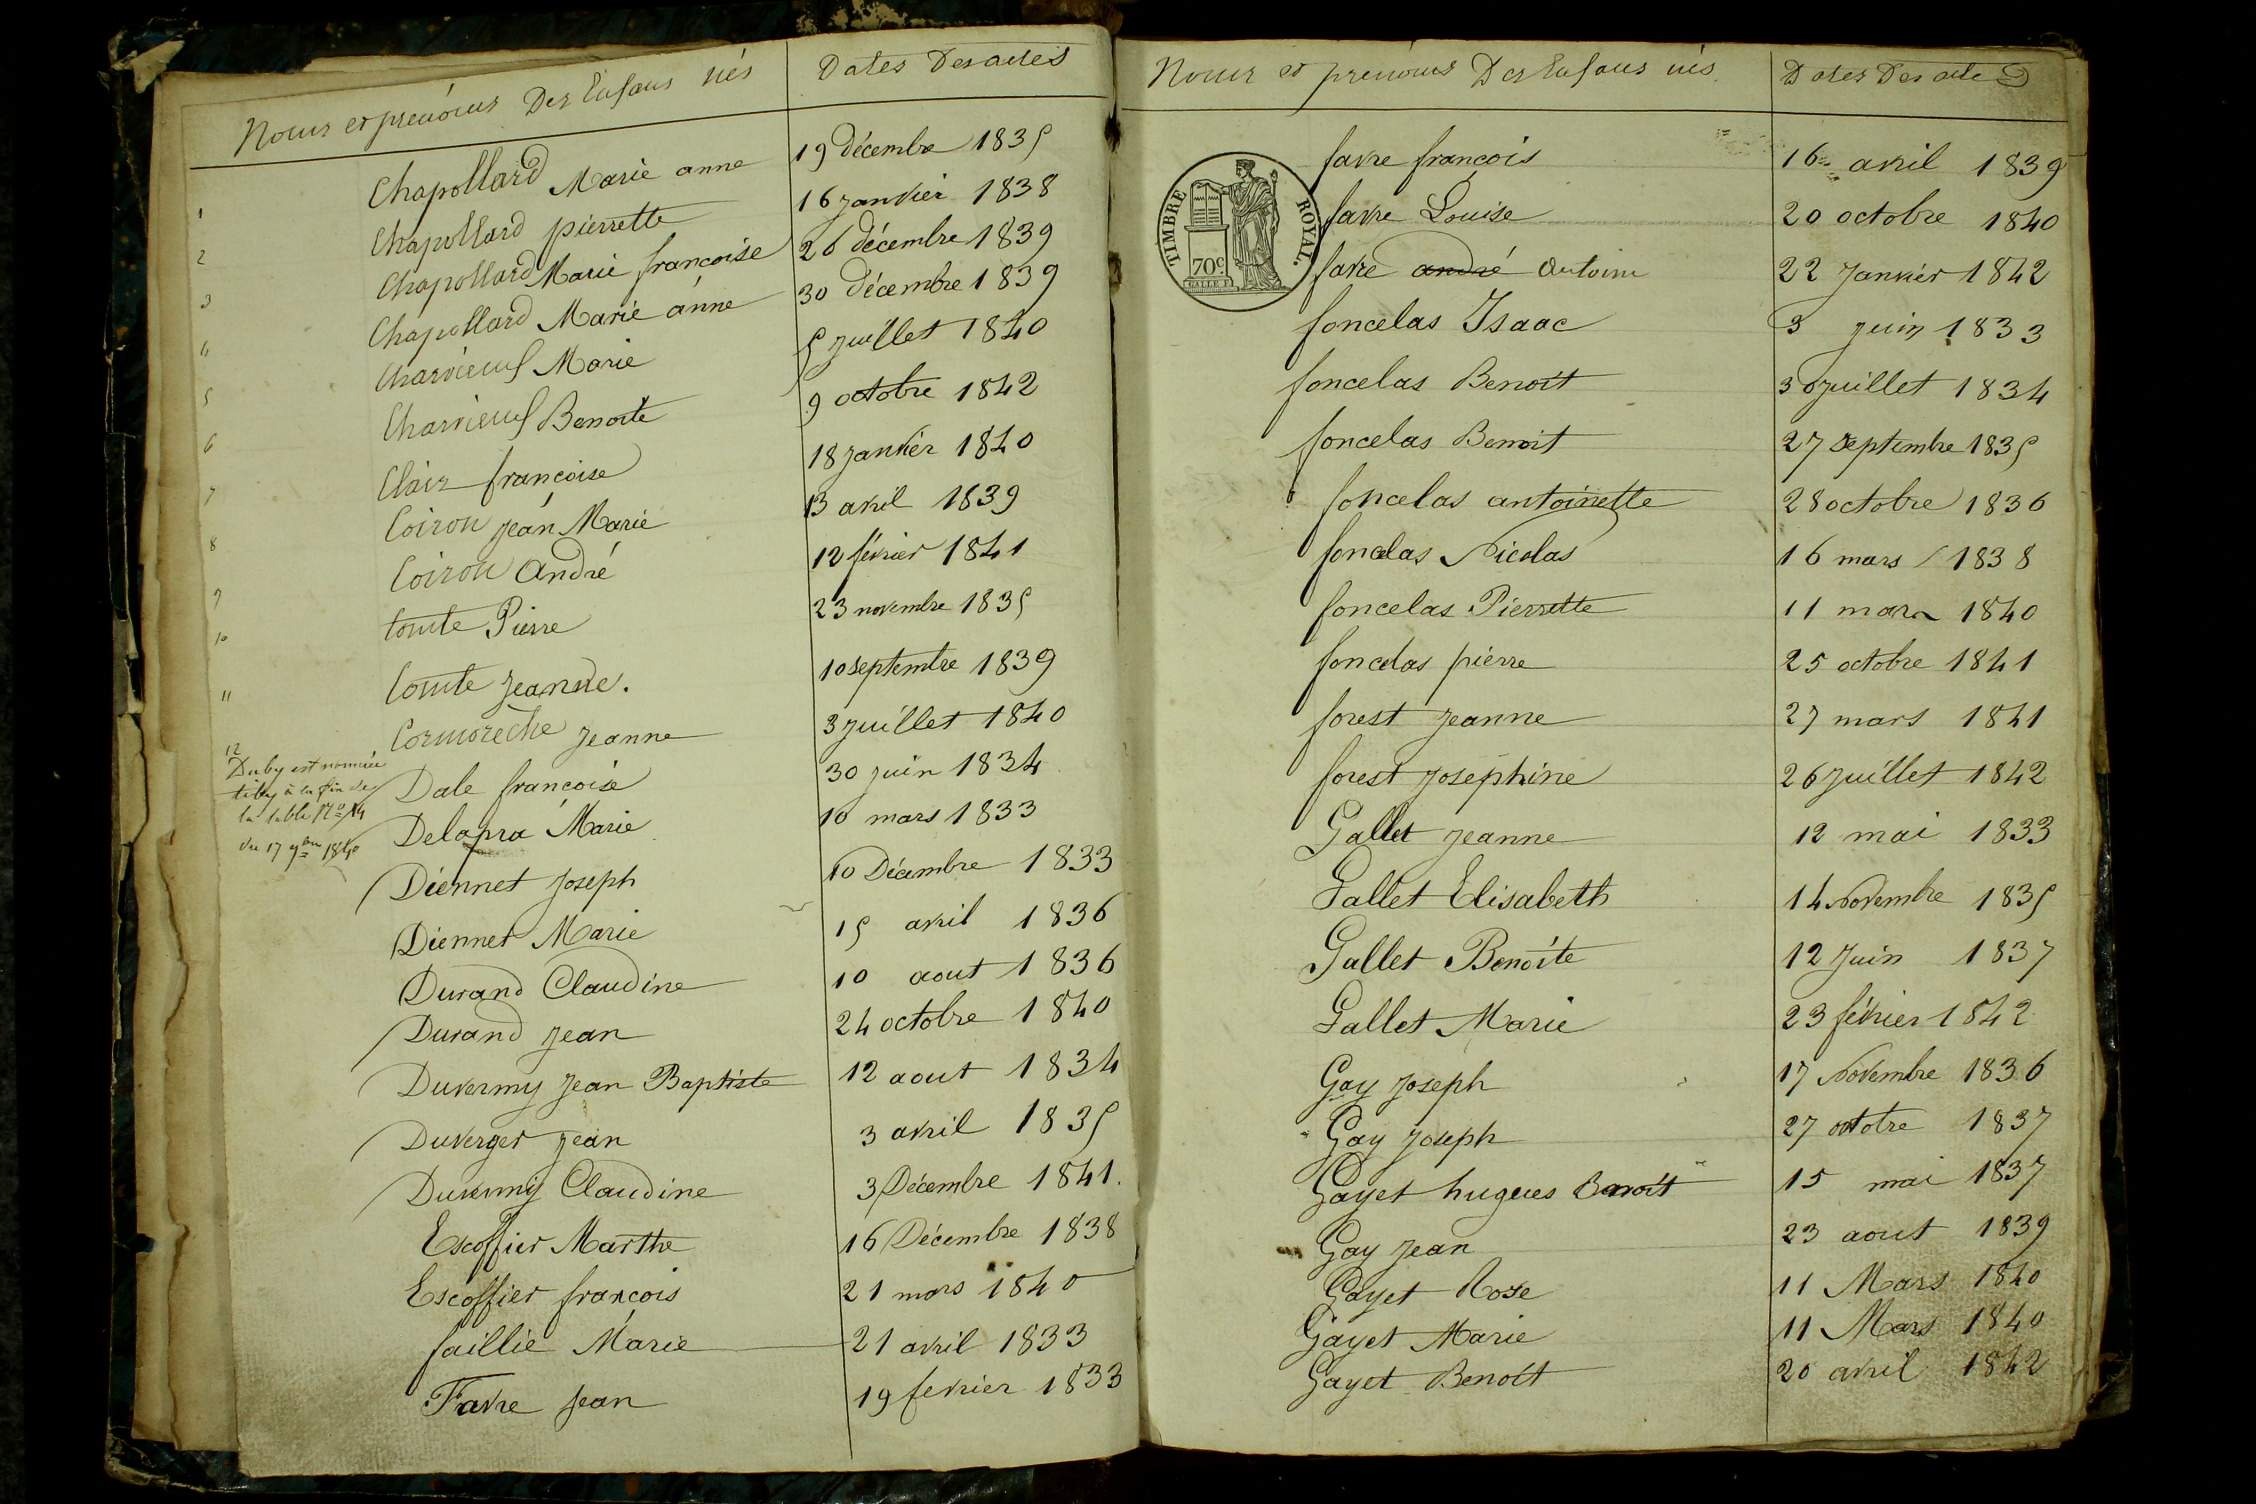 Noms et prénoms Des Enfans nés
Dates Des actes
1
2
3
4
5
6
7
8
9
10
11
12
Chapollard Marie anne 19 décembre 1835
Chapollard pierrette 16 janvier 1838
Chapollard Marie francoise 26 décembre 1839
Chapollard Marie anne 30 décembre 1839
Charvieuf Marie 5 juillet 1840
Charvieuf Benoite 9 octobre 1842
Clair francoise 18 janvier 1840
Coiron jean Marie 13 avril 1839
Coiron andré 12 février 1841
Comte Pierre 23 novembre 1835
Comte jeanne. 10 septembre 1839
Cormorèche jeanne 3 juillet 1840
Duby est nommée
tiby à la fin de
la table No 14
du 17 9bre 1840
Dale francoise 30 juin 1834
Delapra Marie 10 mars 1833
Diennet joseph 10 Décembre 1833
Diennet Marie 15 avril 1836
Durand Claudine 10 aout 1836
Durand jean 24 octobre 1840
Duvermy jean Baptiste 12 aout 1834
Duverger jean 3 avril 1835
Duvermy Claudine 3 Décembre 1841.
Escoffier Marthe 16 Décembre 1838
Escoffier francois 21 mars 1840
faillie Marie 21 avril 1833
Favre jean 19 fevrier 1833
Noms et prénoms Des Enfans nés
Dates Des actes
TIMBRE ROYAL.
70c.
favre francois 16 avril 1839
favre Louise 20 octobre 1840
favre andré antoine 22 janvier 1842
foncelas Isaac 3 juin 1833
foncelas Benoit 30 juillet 1834
foncelas Benoit 27 septembre 1835
foncelas antoinette 28 octobre 1836
foncelas Nicolas 16 mars 1838
foncelas Pierrette 11 mars 1840
foncelas pierre 25 octobre 1841
forest jeanne 27 mars 1841
forest josephine 26 juillet 1842
Gallet jeanne 12 mai 1833
Gallet Elisabeth 14 Novembre 1835
Gallet Benoite 12 juin 1837
Gallet Marie 23 février 1842
Gay joseph 17 Novembre 1836
Gay joseph 27 octobre 1837
Gayet hugues Benoit 15 mai 1837
Gay jean 23 aout 1839
Gayet Rose 11 Mars 1840
Gayet Marie 11 Mars 1840
Gayet Benoit 20 avril 1842